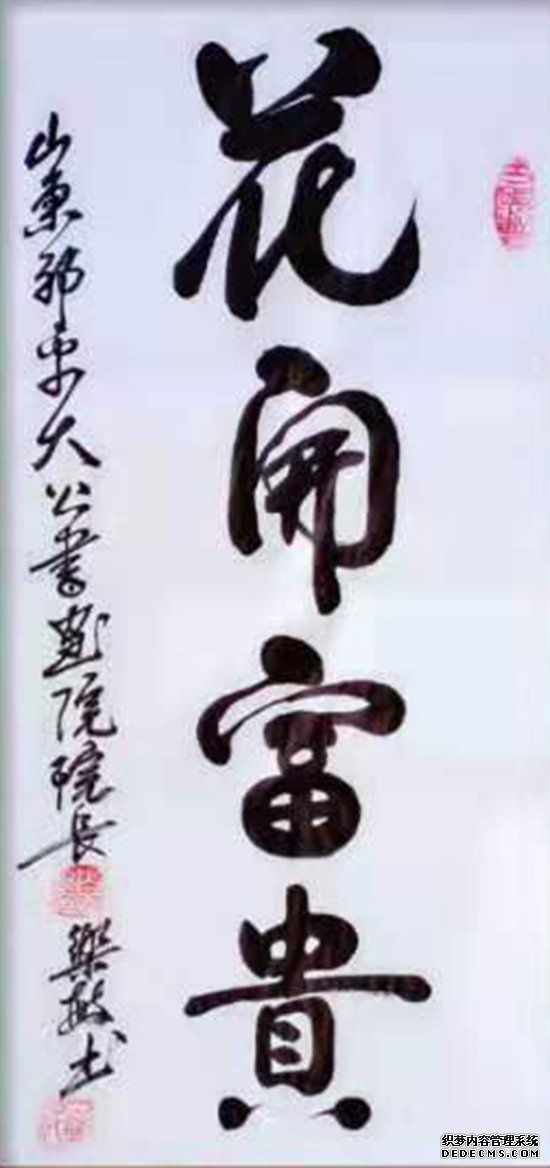 花開富貴
山東大公書画院院長
织梦内容管理系统
DEDECMS.COM